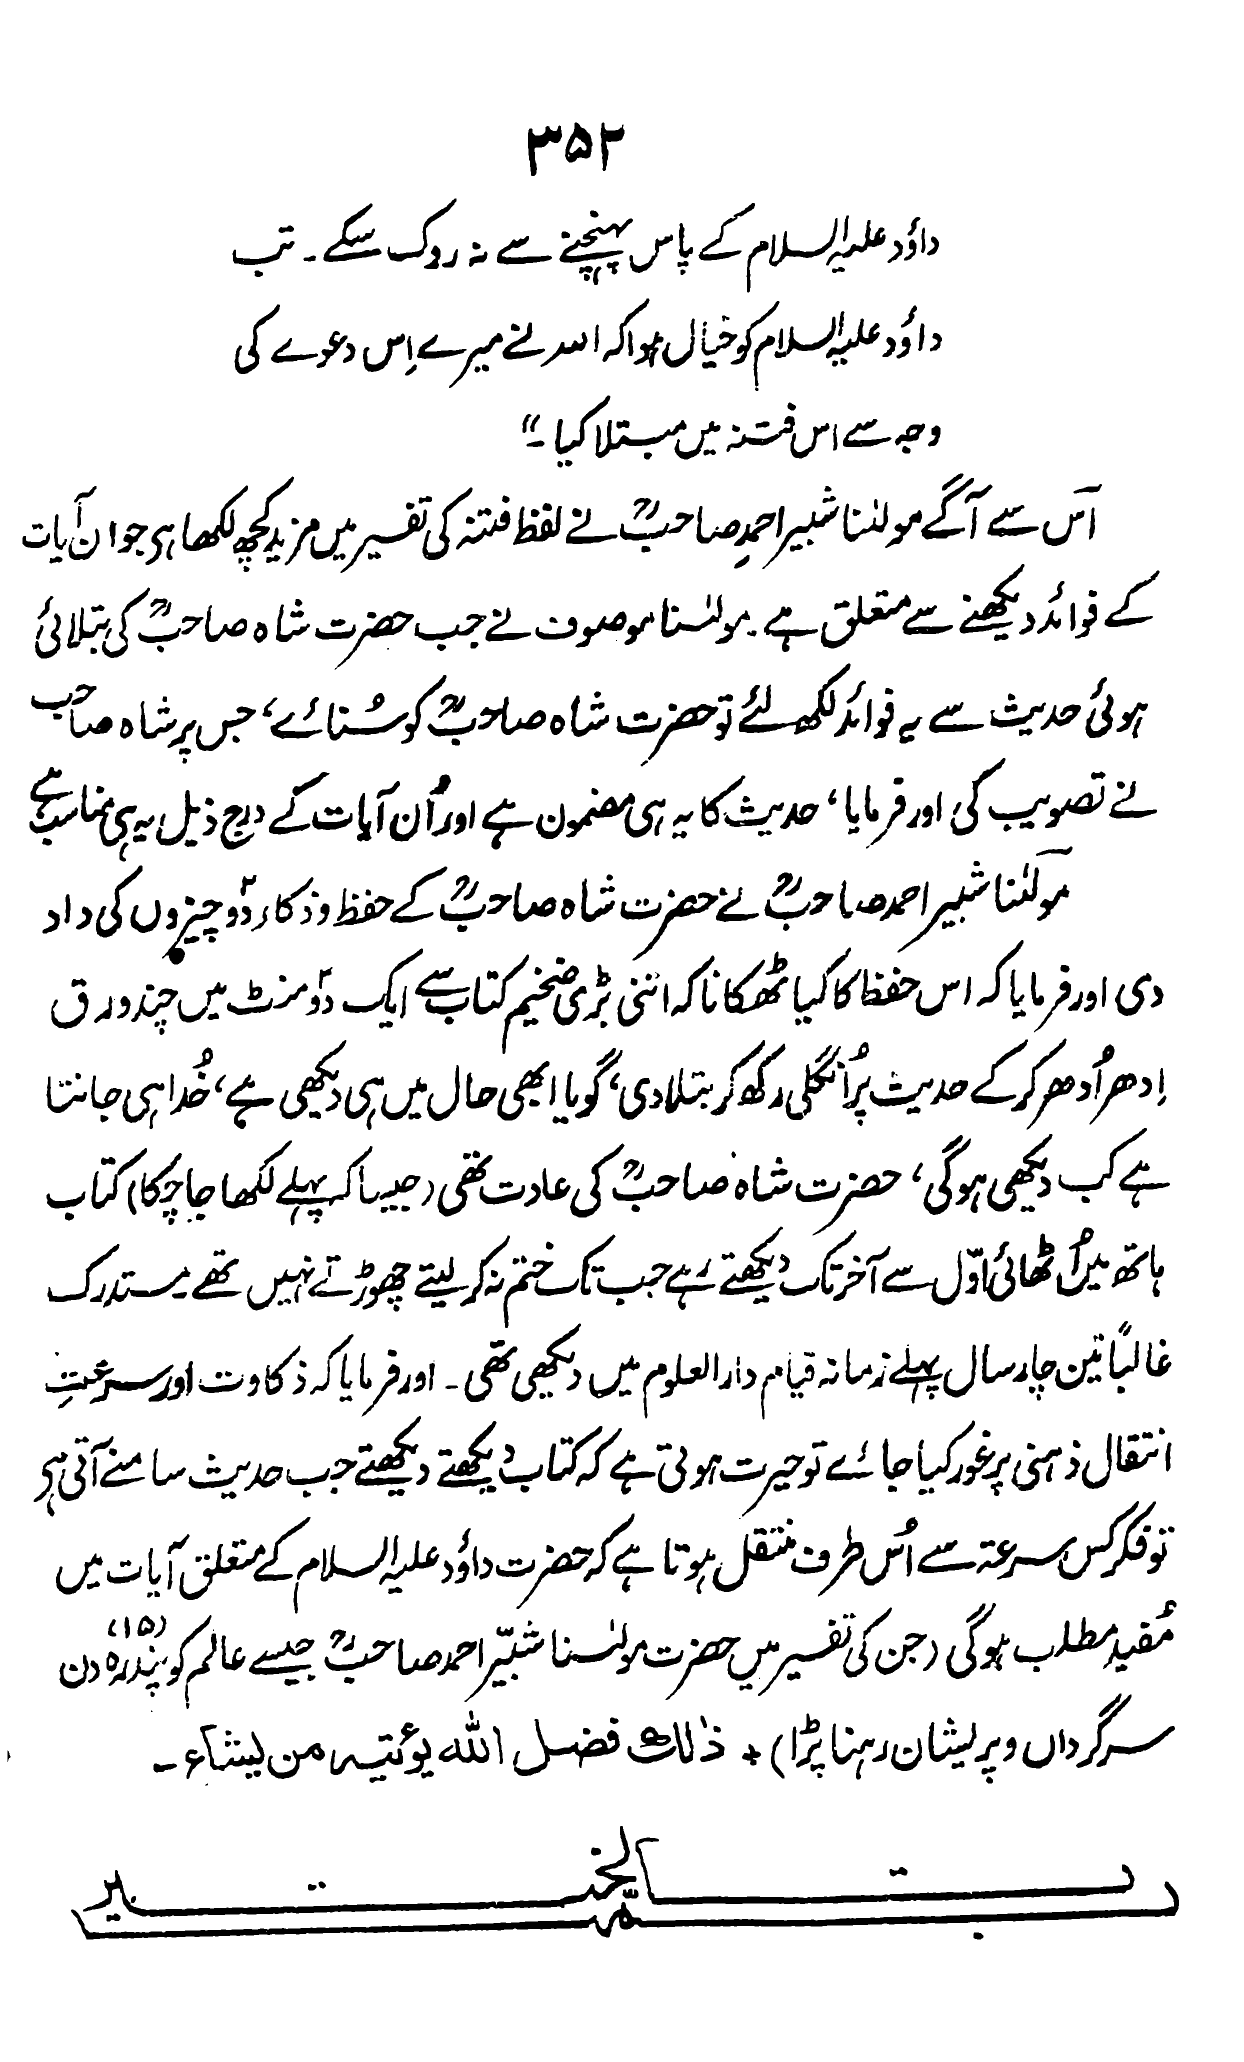 ۳۵۲
داؤد علیہ السلام کے پاس پہنچنے سے نہ روک سکے۔ تب
داؤد علیہ السلام کو خیال ہوا کہ اللہ نے میرے اِس دعوے کی
وجہ سے اس فتنہ میں مبتلا کیا۔"
اس سے آگے مولٰنا شبیر احمد صاحبؒ نے لفظ فتنہ کی تفسیر میں مزید کچھ لکھا ہی جو ان آیات
کے فوائد دیکھنے سے متعلق ہے۔ مولٰسنا موصوف نے جب حضرت شاہ صاحبؒ کی بتلائی
ہوئی حدیث سے یہ فوائد لکھ لئے تو حضرت شاہ صاحبؒ کو سُنائے، جس پر شاہ صاحب
نے تصویب کی اور فرمایا، حدیث کا یہ ہی مضمون ہے اور اُن آیات کے درج ذیل یہ ہی مناسب ہے
مولٰنا شبیر احمد صاحبؒ نے حضرت شاہ صاحبؒ کے حفظ و ذکاء دو چیزوں کی داد
دی اور فرمایا کہ اس حفظ کا کیا ٹھکانا کہ اتنی بڑی ضخیم کتاب سے ایک دو منٹ میں چند ورق
اِدھر اُدھر کر کے حدیث پر اُنگلی رکھ کر بتلا دی، گویا ابھی حال میں ہی دیکھی ہے، خُدا ہی جانتا
ہے کب دیکھی ہوگی، حضرت شاہ صاحبؒ کی عادت تھی (جیسا کہ پہلے لکھا جا چکا) کتاب
ہاتھ میں اُٹھائی اوّل سے آخر تک دیکھتے رہے جب تک ختم نہ کر لیتے چھوڑتے نہیں تھے۔ مستدرک
غالباً تین چار سال پہلے زمانہ قیام دارالعلوم میں دیکھی تھی۔ اور فرمایا کہ ذکاوت اور سرعتِ
انتقال ذہنی پر غور کیا جائے تو حیرت ہوتی ہے کہ کتاب دیکھتے دیکھتے جب حدیث سامنے آتی ہی
تو فکر کس سرعۃ سے اُس طرف منتقل ہوتا ہے کہ حضرت داؤد علیہ السلام کے متعلق آیات میں
مُفید مطلب ہوگی (جن کی تفسیر میں حضرت مولٰسنا شبّیر احمد صاحبؒ جیسے عالم کو پندرہ (۱۵) دن
سرگرداں و پریشان رہنا پڑا) + ذٰلک فضل اللہ یؤتیہ من یشاء۔
تمت بالخیر